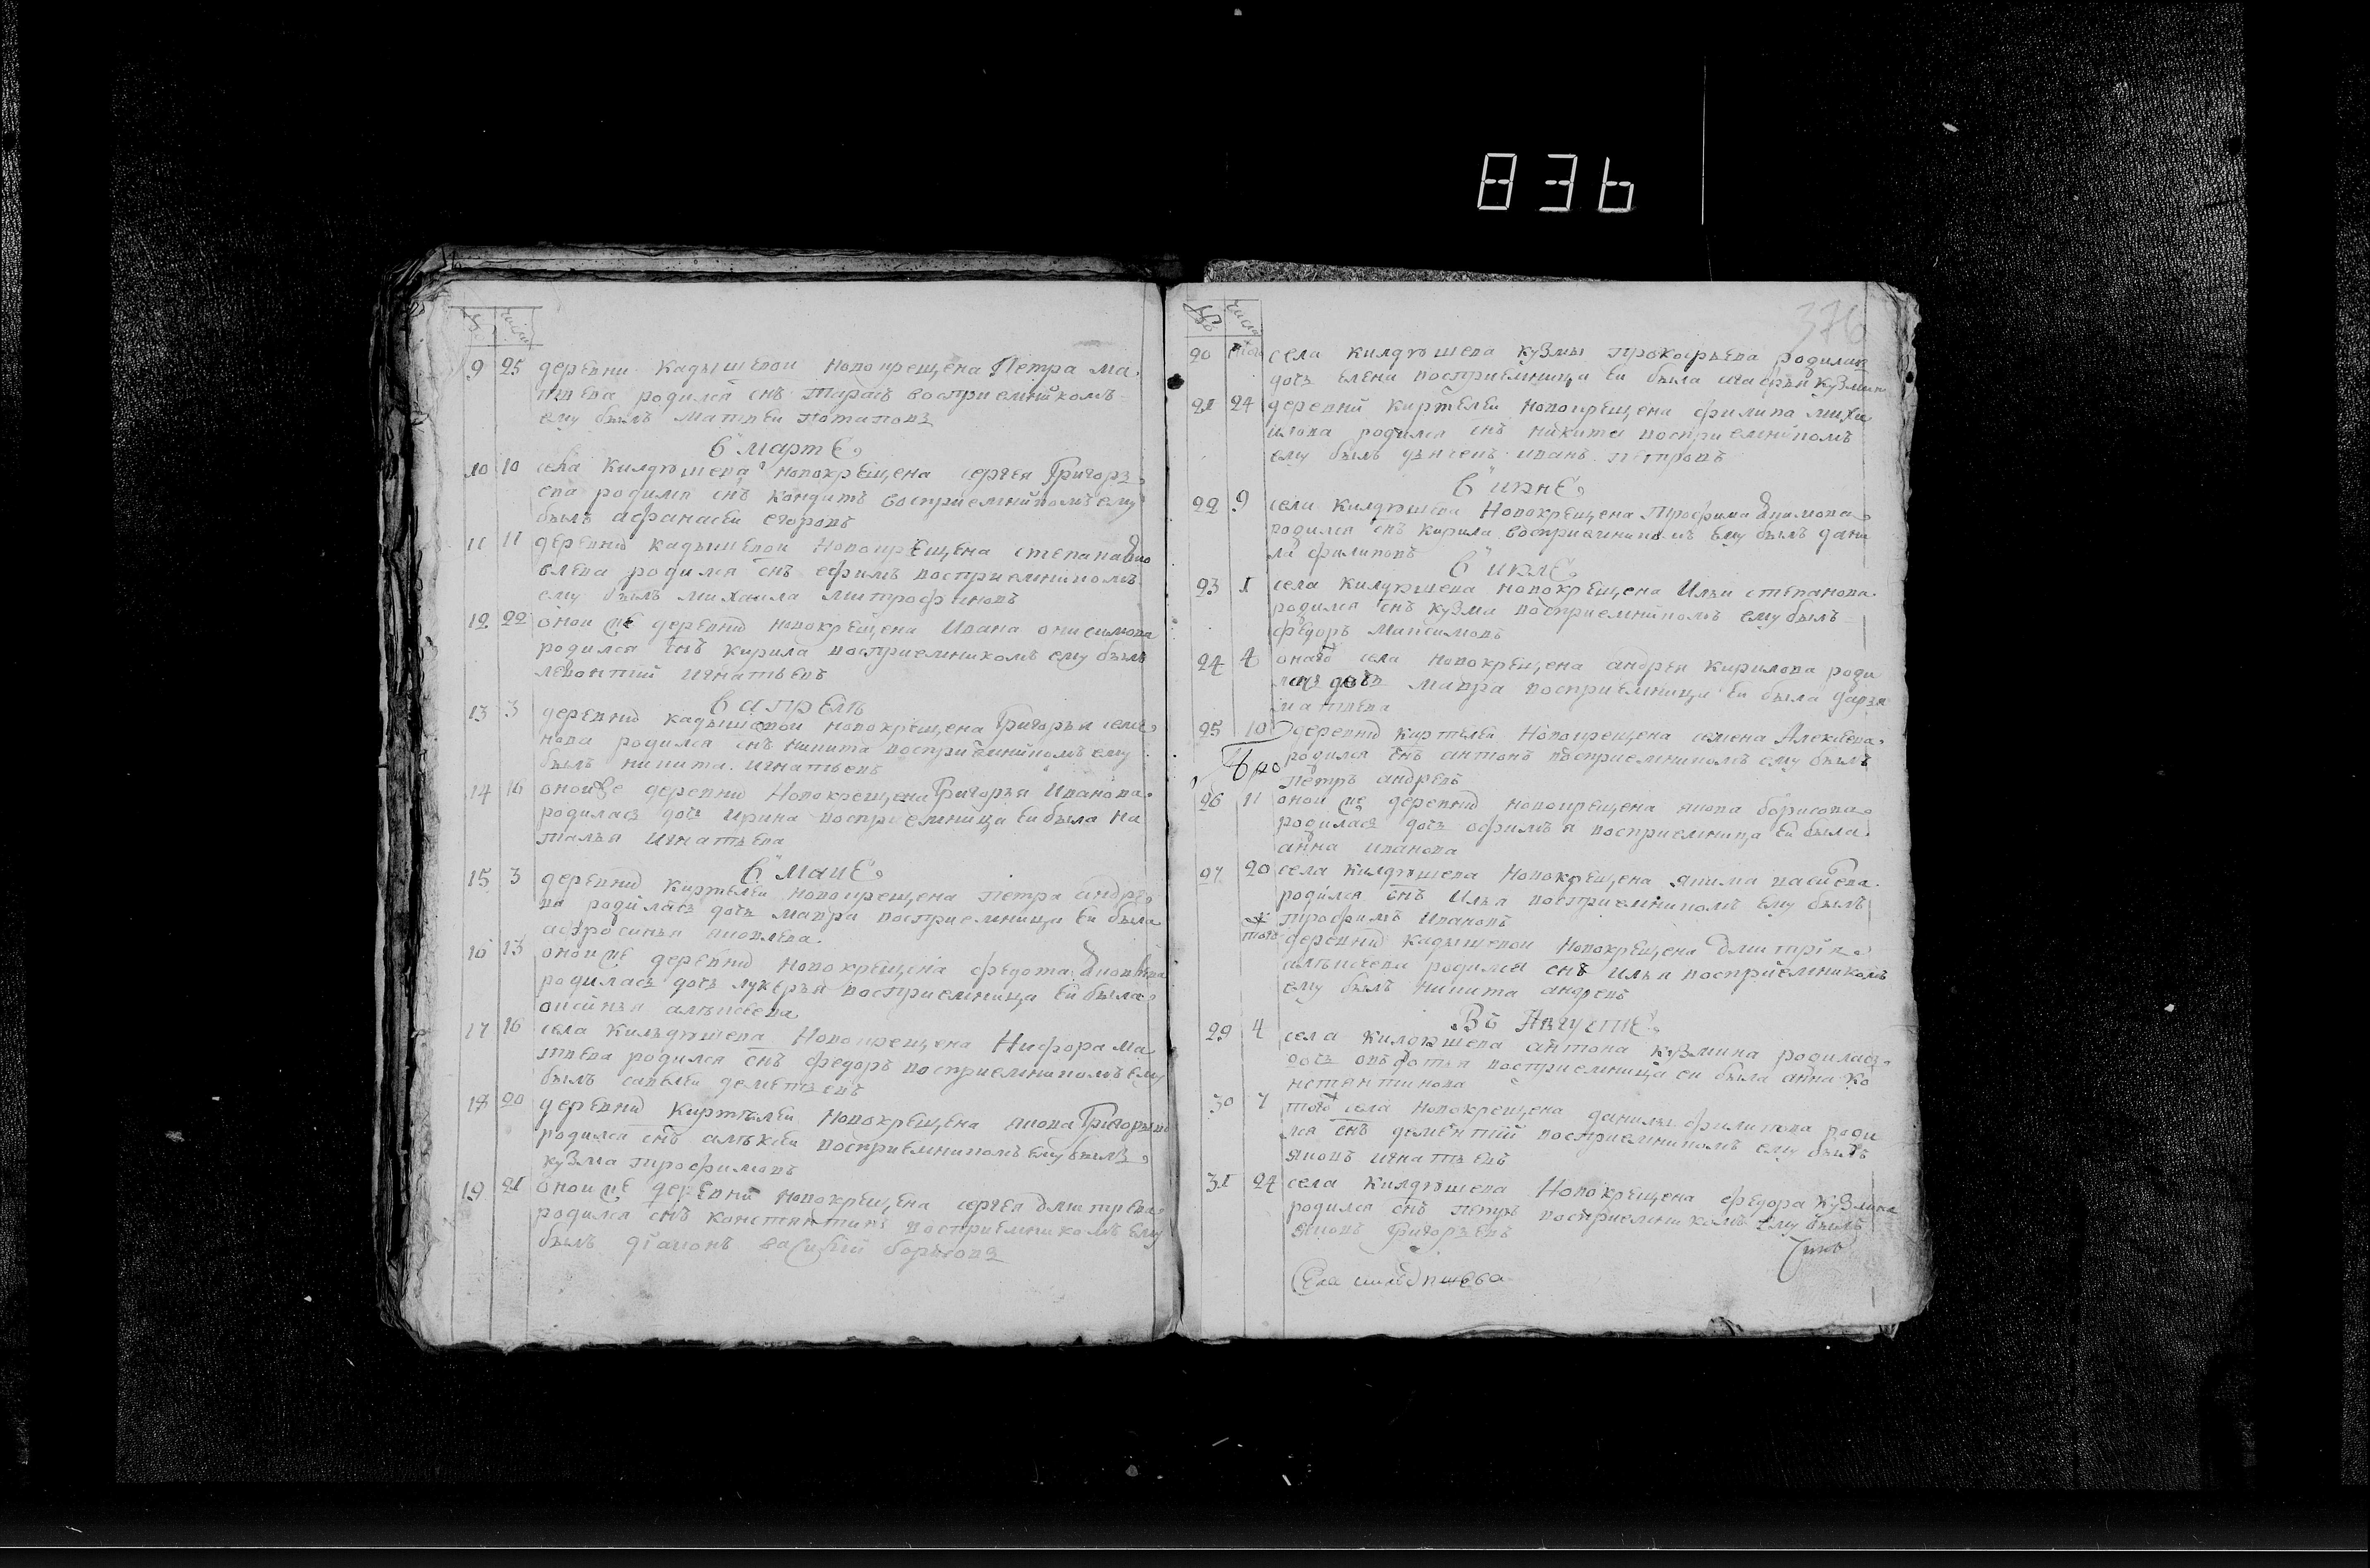 836
№ числа
9 25 деревни Кадышевои новокрещена Петра ма
твева родился снъ тарасъ восприемникомъ
ему былъ матвеи потаповъ
в марте
10 10 села Килдюшева новокрещена сергея Григорь
ева родился снъ кондратъ восприемникомъ ему
былъ афанасеи егоровъ
11 11 деревни кадышевои новокрещена степана яко
влева родился снъ ефимъ восприемникомъ
ему былъ михаила митрофановъ
12 22 онои же деревни новокрещена Ивана онисимова
родился снъ кирила восприемникомъ ему былъ
левонтии игнатьевъ
в апреле
13 3 деревни кадышевои новокрещена Григорья семе
нова родился снъ никита восприемникомъ ему
былъ никита игнатьевъ
14 16 онои же деревни Новокрещена Григорья Иванова
родилась дочь ирина восприемница еи была на
талья игнатьева
в маие
15 3 деревни киртели новокрещена петра андрее
ва родилась дочь мавра восприемница еи была
афросинья яковлева
16 13 онои же деревни новокрещена федота яковлева
родилась дочь лукерья восприемница еи была
аксинья алексеева
17 16 села Кильдюшева Новокрещена Никифора ма
твева родился снъ федоръ восприемникомъ ему
былъ савелеи дементьевъ
18 20 деревни Киртели новокрещена якова Григорьева
родился снъ алексеи восприемникомъ ему былъ
кузма трофимовъ
19 21 онои же деревни новокрещена сергея дмитрева
родился снъ констянтинъ восприемникомъ ему
былъ дiаконъ василии борисовъ
376
№ числа
20 того села килдюшева кузмы прокофьева родилась
дочь елена восприемница еи была
21 24 деревни киртели новокрещена филипа михаи
илова родился снъ никита восприемникомъ
ему былъ иванъ петровъ
в июне
22 9 села килдюшева Новокрещена Трофима
родился снъ кирила восприемникомъ ему былъ дани
ла филиповъ
в июле
23 1 села килдюшева новокрещена Ильи степанова
родился снъ кузма восприемникомъ ему былъ
федоръ максимовъ
24 4 онаго села новокрещена андрея кирилова роди
лась дочь мавра восприемница еи была дарья
матвева
25 10 деревни киртели Новокрещена семена Алексеева
родился снъ антонъ восприемникомъ ему былъ
петръ андревъ
26 11 онои же деревни новокрещена якова борисова
родилась дочь офимья восприемница еи была
анна иванова
27 20 села килдюшева Новокрещена якима
родился снъ илья восприемникомъ ему былъ
трофимъ ивановъ
того деревни кадышевои новокрещена дмитрiя
алексеева родился снъ илья восприемникомъ
ему былъ никита андревъ
Въ Августе
29 4 села килдюшева антона кузмина родилась
дочь овдотья восприемница еи была анна ко
нстентинова
30 7 того села новокрещена данилы филипова роди
лся снъ дементии восприемникомъ ему былъ
яковъ игнатьевъ
31 24 села килдюшева Новокрещена федора кузмина
родился снъ петръ восприемникомъ ему былъ
яковъ Григорьевъ
Села